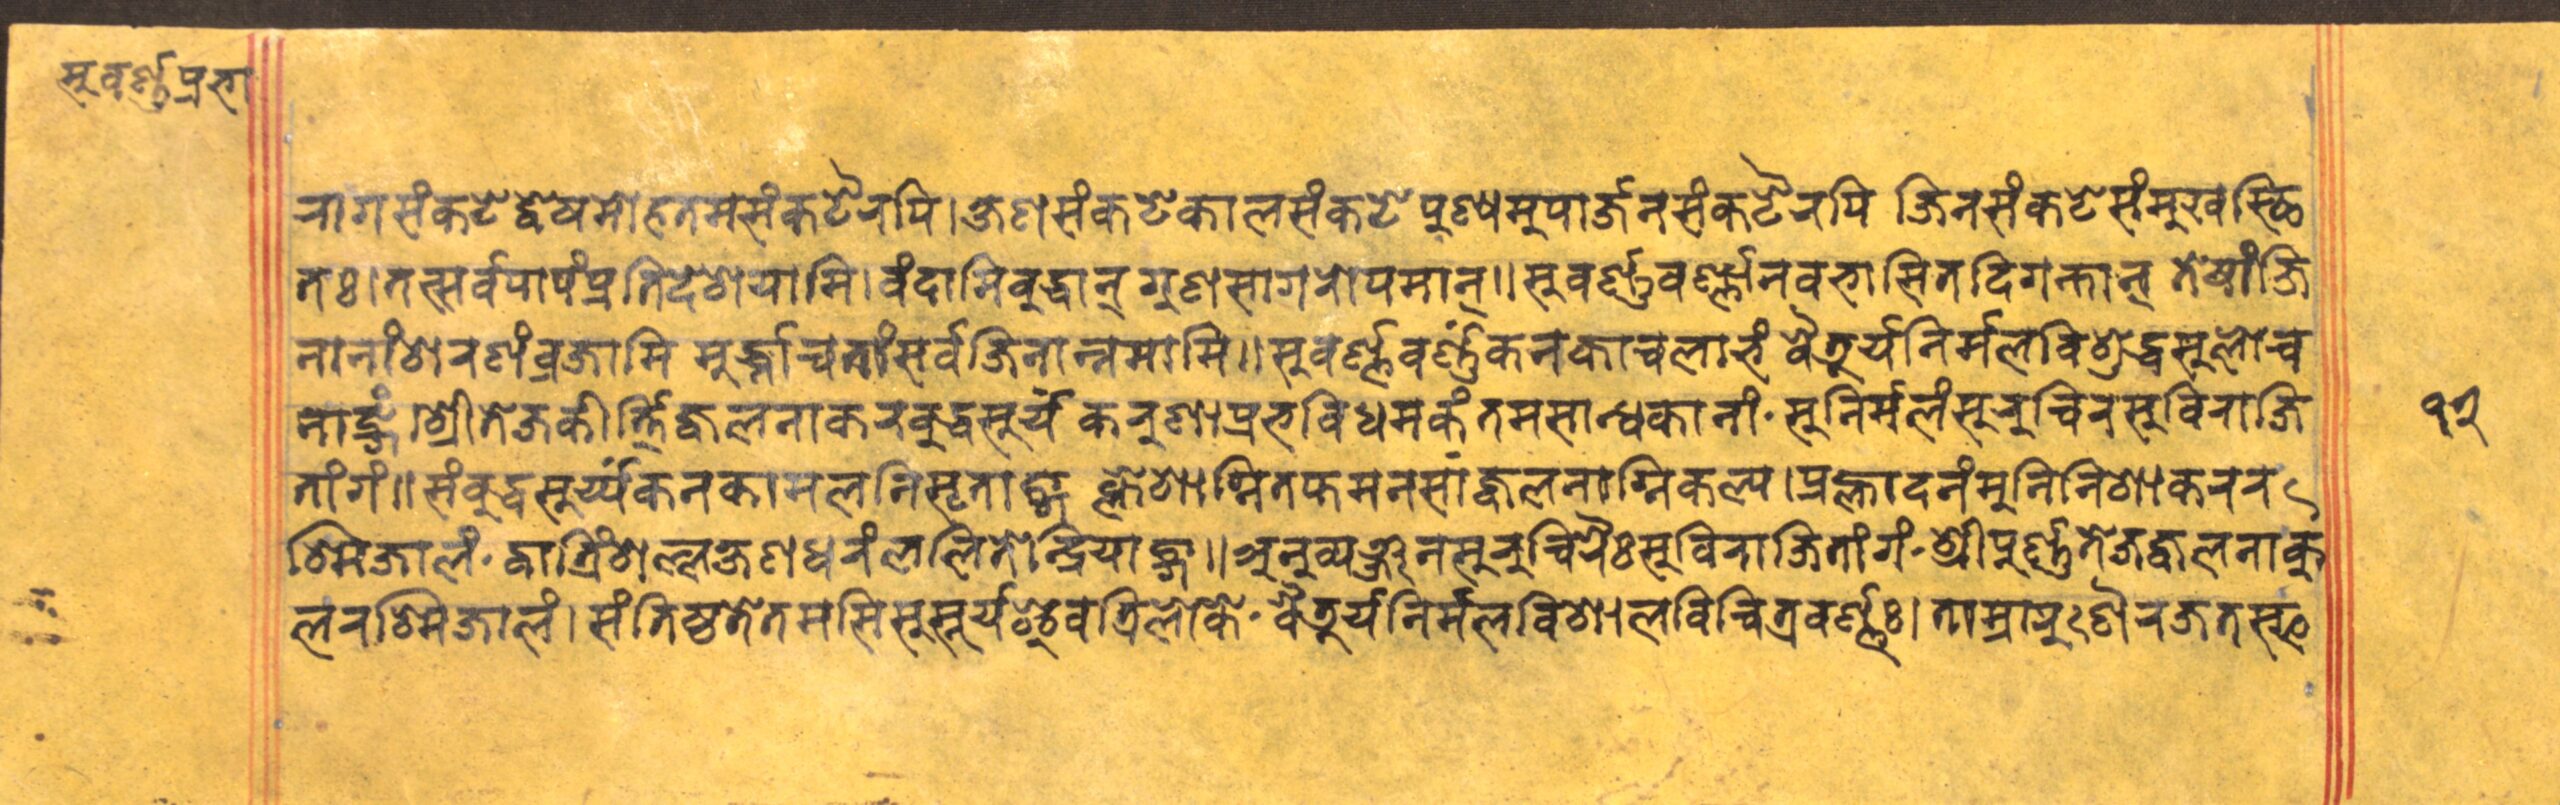 सुवर्णप्रभा
रागसंकटे द्वेषमोहतमसंकटैरपि। क्षणसंकटेकालसंकटे पुण्यमुपार्जनसंकटैरपि जिनसंकटेसंमुखस्थि
तः। तत्सर्वपापंप्रतिदेशयामि। वंदामिबुद्धान् गुणसागरोपमान्॥ सुवर्णवर्णानवभासितदिगन्तान् तेषांजि
नानांशरणंव्रजामि मुर्द्ध्नाचतांसर्वजिनान्नमामि॥ सुवर्णवर्णंकनकाचलाभं वैतूर्यनिर्मलविशुद्धसुलोच
नाङ्गं। श्रीतेजकीर्त्तिज्वलनाकरबुद्धसुर्यं करुणाप्रभविधमकंतमसान्धकानां· सुनिर्मलंसुरुचिरसुविराजि
तांगं॥ संबुद्धसुर्य्यंकनकामलनिसृताङ्ग क्लेशाग्नितफमनसांज्वलनाग्निकल्प। प्रह्लादनंमुनिनिशाकरर
श्मिजालं· द्वात्रिंशल्लक्षणधरंललितेन्द्रियाङ्ग॥ अनुव्यञ्जनसुरुचिरैःसुविराजितांगं· श्रीपुर्णतेजज्वलनाकु
लरश्मिजालं। संतिष्ठतेतमसिसुसूर्य इवत्रिलोके· वैतूर्यनिर्मलविशालविचित्रवर्णः। ताम्रारुणैरजतस्फ
१२